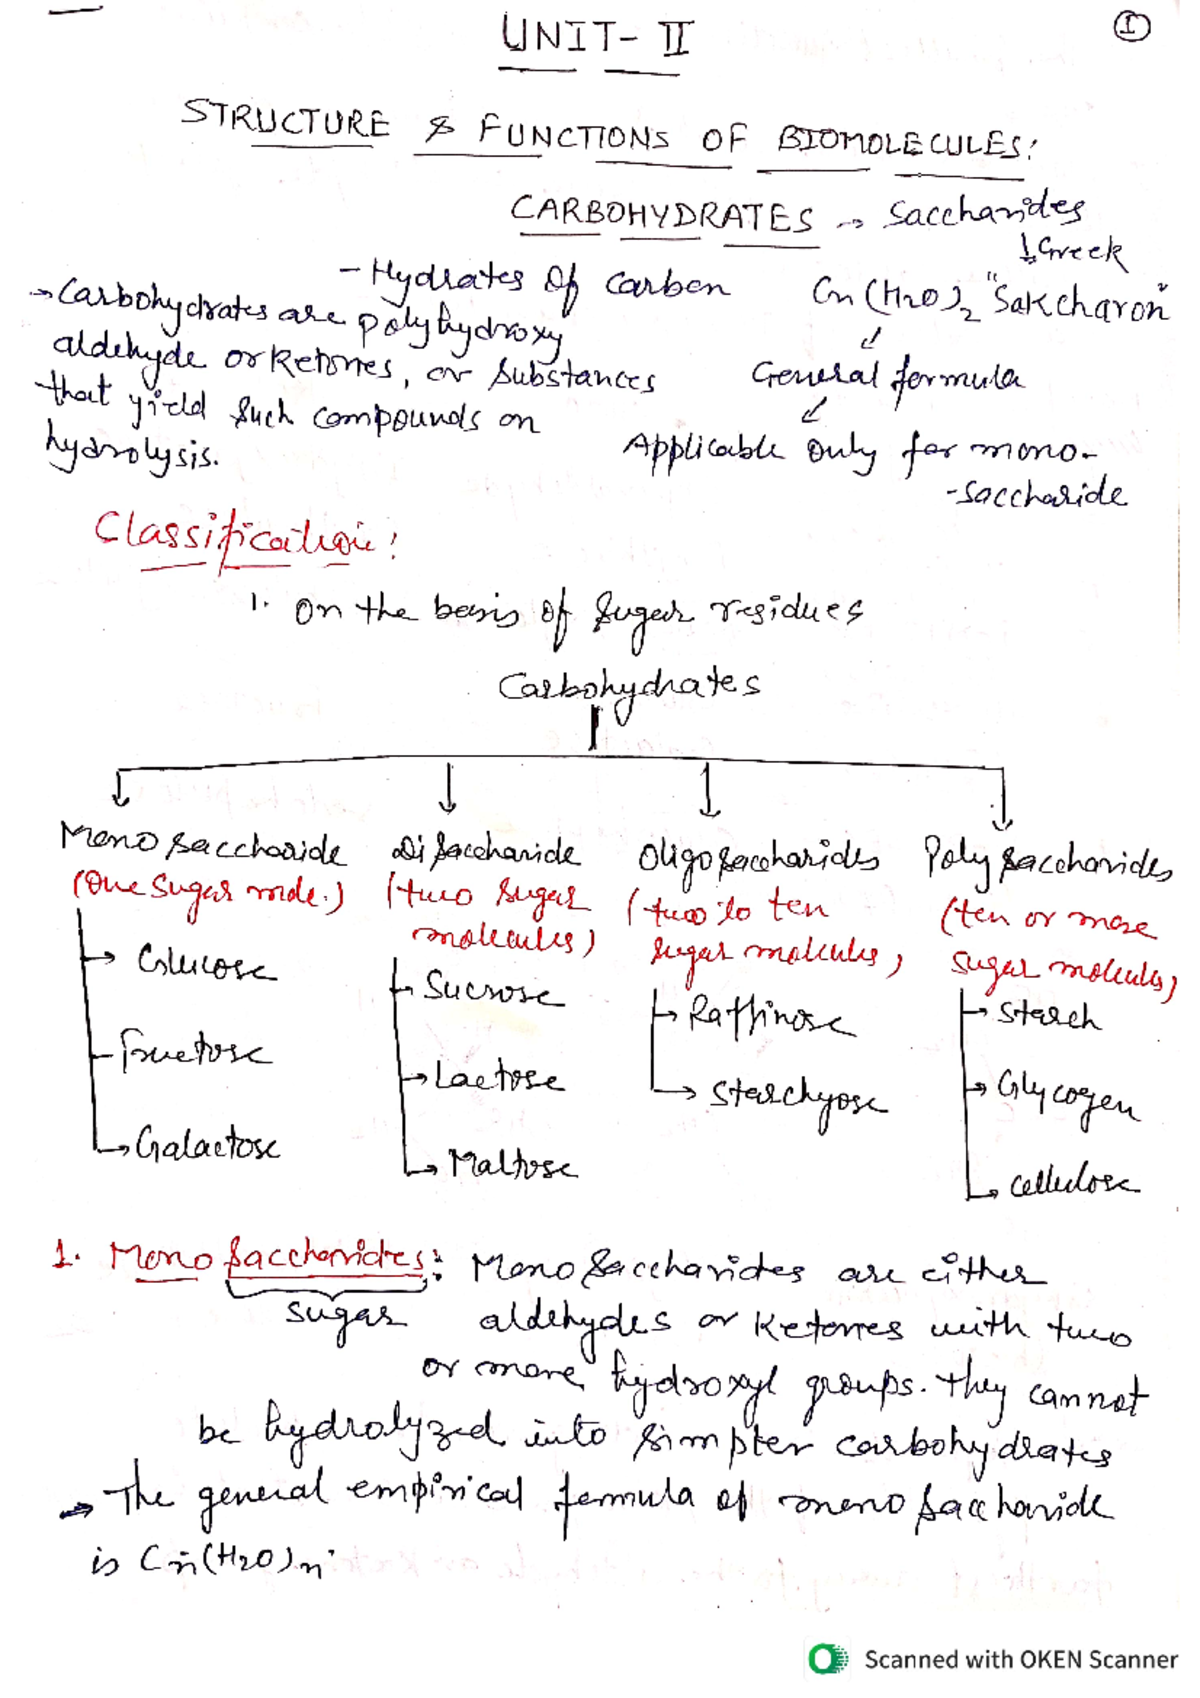 UNIT- II
1
STRUCTURE & FUNCTIONS OF BIOMOLECULES:
CARBOHYDRATES → Saccharides
↓ Greek
- Hydrates of Carbon
Cn(H2O)2 "Sakcharon"
→ Carbohydrates are polyhydroxy
aldehyde or Ketones, or Substances
that yield such compounds on
hydrolysis.
General formula
Applicable only for mono-
-saccharide
Classification:
1. On the basis of Sugar residues
Carbohydrates
Monosaccharide
(One Sugar mole.)
→ Glucose
- Fructose
→ Galactose
Disaccharide
(two Sugar
molecules)
→ Sucrose
→ Lactose
→ Maltose
Oligosaccharides
(two to ten
sugar molcules)
→ Raffinose
→ Starchyose
Polysaccharides
(ten or more
sugar molcules)
→ Starch
→ Glycogen
→ cellulose
1. Monosaccharides: Monosaccharides are either
sugar
aldehydes or Ketones with two
or more hydroxyl groups. they cannot
be hydrolyzed into simpler carbohydrates
→ The general empirical formula of monosaccharide
is Cn(H2O)n.
Scanned with OKEN Scanner